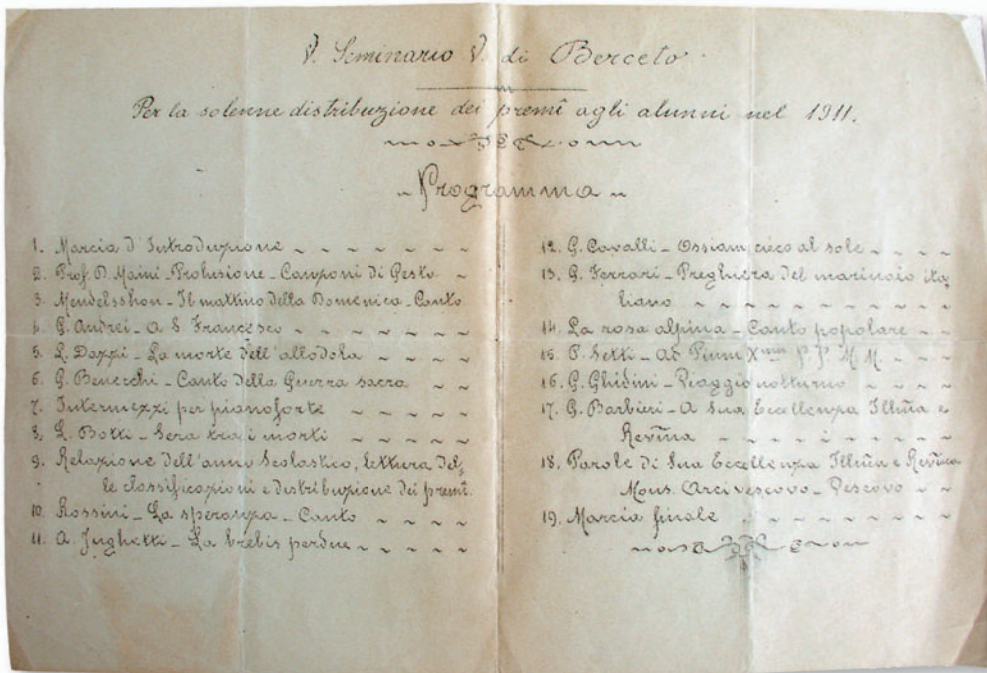 V. Seminario V. di Berceto.
Per la solenne distribuzione dei premî agli alunni nel 1911.
Programma
1. Marcia d'Introduzione
2. Prof. D. Maini - Prolusione - Camponi di Gesto
3. Mendelsshon - Il mattino della Domenica - Canto
4. G. Andrei - A S. Francesco
5. L. Dazzi - La morte dell'allodola
6. G. Benecchi - Canto della Guerra sacra
7. Intermezzi per pianoforte
8. L. Botti - Sera tra i morti
9. Relazione dell'anno Scolastico, lettura del=
le classificazioni e distribuzione dei premî.
10. Rossini - La speranza - Canto
11. A. Jughetti - La brebis perdue
12. G. Cavalli - Ossian cieco al sole
13. G. Ferrari - Preghiera del marinaio ita=
liano
14. La rosa alpina - Canto popolare
15. P. Setti - Ad Pium Xmm P. P. M. M.
16. G. Ghidini - Viaggio notturno
17. G. Barbieri - A Sua Eccellenza Illm̃a e
Revm̃a
18. Parole di Sua Eccellenza Illm̃a e Revm̃a
Mons. Arcivescovo - Vescovo
19. Marcia finale